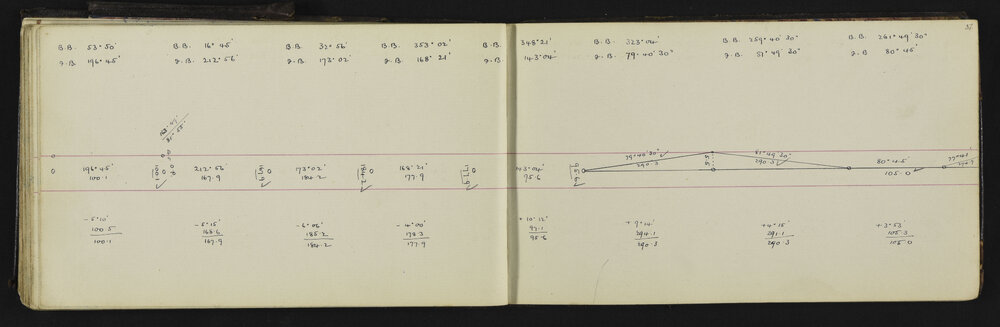 37.
B.B. 53° 50'
B.B. 16° 45'
B.B. 32° 56'
B.B. 353° 02'
B.B. 348° 21'
B.B. 323° 04'
B.B. 259° 40' 30"
B.B. 261° 49' 30"
F.B. 196° 45'
F.B. 212° 56'
F.B. 173° 02
F.B. 168° 21
F.B. 143° 04'
F.B. 79° 40' 30"
F.B. 81° 49' 30"
F.B. 80° 45'
79° 40' 30"
290.3
81° 49' 30"
290.3
196° 45'
100.1
212° 56'
167.9
173° 02'
184.2
168° 21'
177.9
143° 04'
95.6
80° 45'
105.0
- 5° 10'
100.5
100.1
- 5° 15'
168.6
167.9
- 6° 06'
185.2
184.2
- 4° 00'
178.3
177.9
+ 10° 12'
97.1
95.6
+ 9° 14'
294.1
290.3
+ 4° 15'
291.1
290.3
+ 3° 53'
105.3
105.0